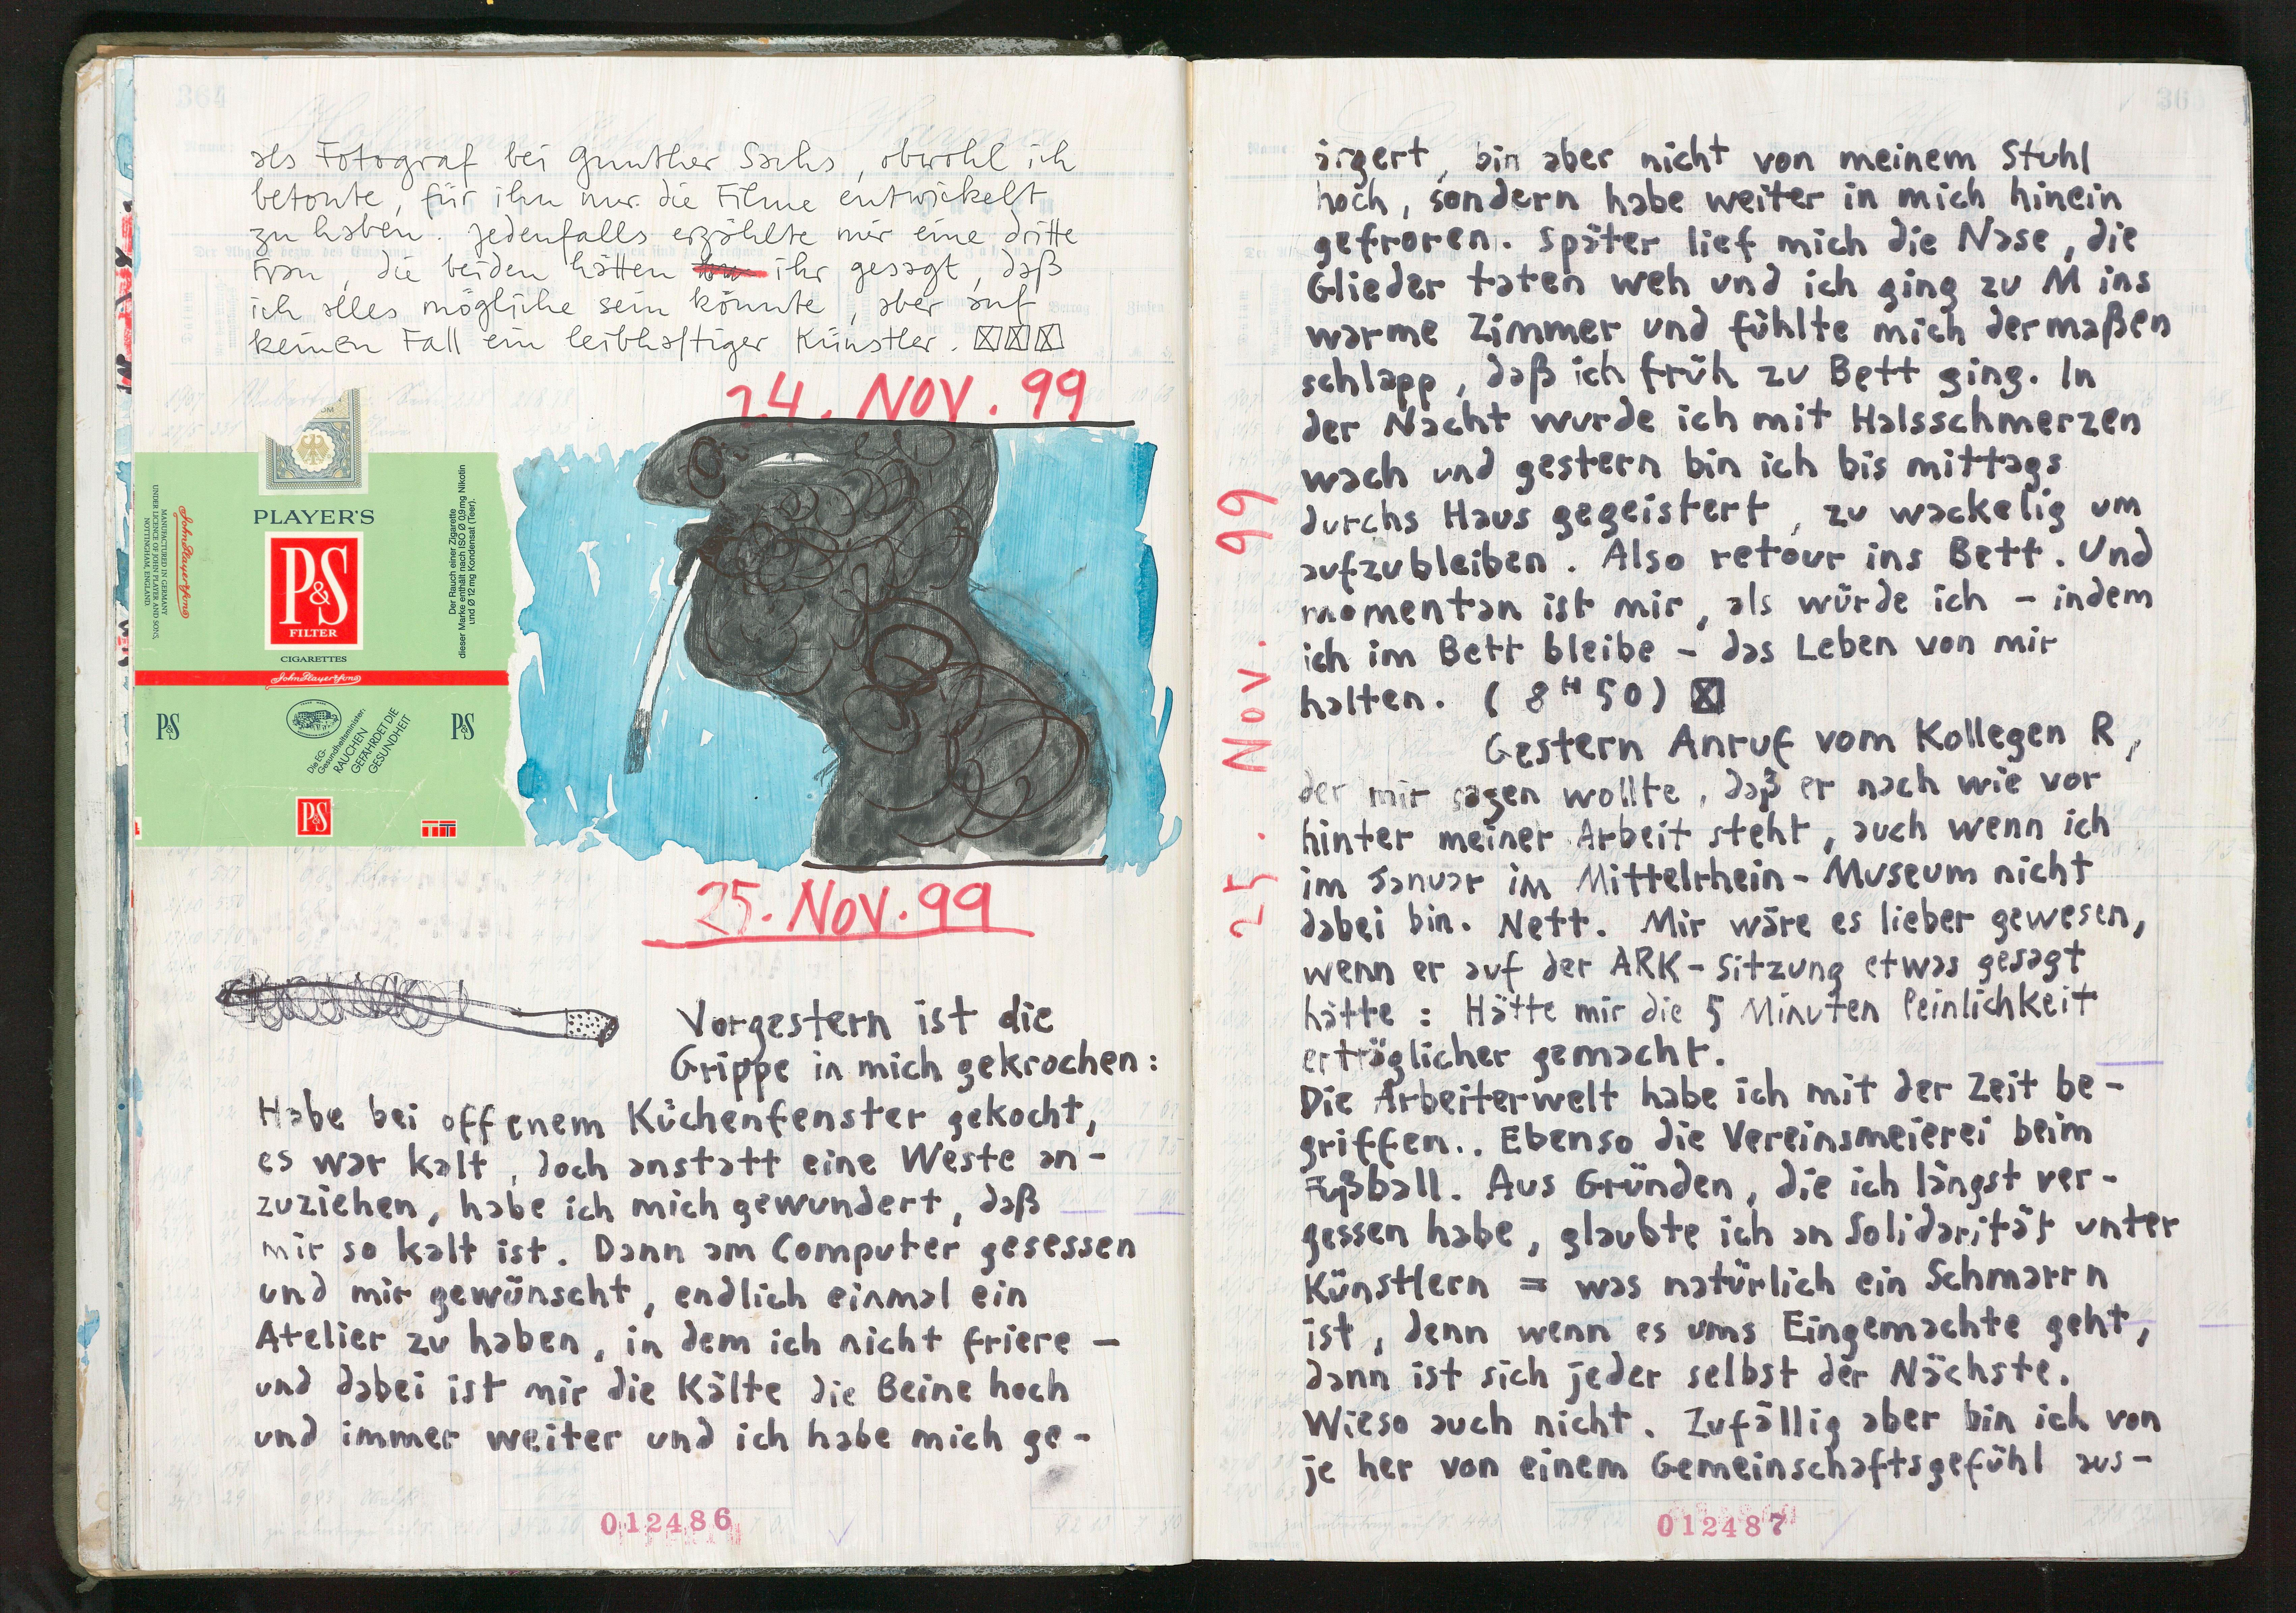 als Fotograf bei Gunther Sachs, obwohl ich
betonte, für ihn nur die Filme entwickelt
zu haben. Jedenfalls erzählte mir eine dritte
Frau, die beiden hätten ihr gesagt, daß
ich alles mögliche sein könnte, aber auf
keinen Fall ein leibhaftiger Künstler.
24. NOV. 99
PLAYER'S
P&S
FILTER
CIGARETTES
John Player & Sons
John Player & Sons
MANUFACTURED IN GERMANY
UNDER LICENCE OF JOHN PLAYER AND SONS,
NOTTINGHAM, ENGLAND.
Der Rauch einer Zigarette
dieser Marke enthält nach ISO Ø 0,9 mg Nikotin
und Ø 12 mg Kondensat (Teer).
P&S
Die EG-
Gesundheitsminister:
RAUCHEN
GEFÄHRDET DIE
GESUNDHEIT
P&S
P&S
25. NOV. 99
Vorgestern ist die
Grippe in mich gekrochen:
Habe bei offenem Küchenfenster gekocht,
es war kalt, doch anstatt eine Weste an-
zuziehen, habe ich mich gewundert, daß
mir so kalt ist. Dann am Computer gesessen
und mir gewünscht, endlich einmal ein
Atelier zu haben, in dem ich nicht friere –
und dabei ist mir die Kälte die Beine hoch
und immer weiter und ich habe mich ge-
012486
364
25. Nov. 99
ärgert, bin aber nicht von meinem Stuhl
hoch, sondern habe weiter in mich hinein
gefroren. Später lief mich die Nase, die
Glieder taten weh und ich ging zu M ins
warme Zimmer und fühlte mich dermaßen
schlapp, daß ich früh zu Bett ging. In
der Nacht wurde ich mit Halsschmerzen
wach und gestern bin ich bis mittags
durchs Haus gegeistert, zu wackelig um
aufzubleiben. Also retour ins Bett. Und
momentan ist mir, als würde ich – indem
ich im Bett bleibe – das Leben von mir
halten. (8ᴴ50)
Gestern Anruf vom Kollegen R,
der mir sagen wollte, daß er nach wie vor
hinter meiner Arbeit steht, auch wenn ich
im Januar im Mittelrhein-Museum nicht
dabei bin. Nett. Mir wäre es lieber gewesen,
wenn er auf der ARK-Sitzung etwas gesagt
hätte: Hätte mir die 5 Minuten Peinlichkeit
erträglicher gemacht.
Die Arbeiterwelt habe ich mit der Zeit be-
griffen.. Ebenso die Vereinsmeierei beim
Fußball. Aus Gründen, die ich längst ver-
gessen habe, glaubte ich an Solidarität unter
Künstlern = was natürlich ein Schmarrn
ist, denn wenn es ums Eingemachte geht,
dann ist sich jeder selbst der Nächste.
Wieso auch nicht. Zufällig aber bin ich von
je her von einem Gemeinschaftsgefühl aus-
012487